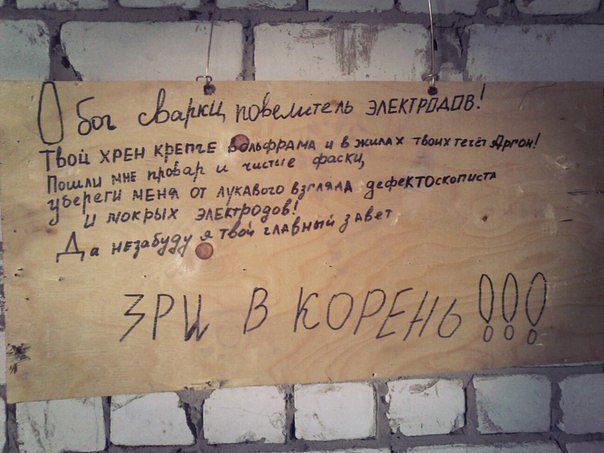 О бог сварки, повелитель ЭЛЕКТРОДОВ!
Твой ХРЕН КРЕПЧЕ вольфрама и в жилах твоих течёт Аргон!
Пошли мне провар и чистые фаски,
убереги меня от лукавого взгляда дефектоскописта
и мокрых электродов!
Да незабуду я твой главный завет
ЗРИ В КОРЕНЬ!!!